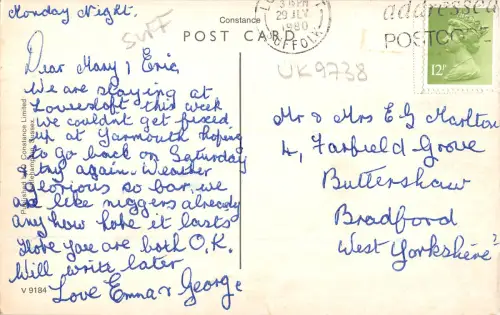 Monday Night.
SUFF
Constance
POST CARD
Dear Mary & Eric,
We are staying at
Lowestoft this week
we couldn't get fixed
up at Yarmouth hoping
to go back on Saturday
& try again. Weather
glorious so far, we
are like niggers already
any how hope it lasts
Hope you are both O.K.
Will write later
Love Emma & George
V 9184
Published by Constance Limited
Littlehampton, Sussex.
3 15PM
29 JLY
1980
SUFFOLK
addressed
POSTCODE
12P
UK9738
Mr & Mrs E G Karlton
4, Farfield Grove
Buttershaw
Bradford
West Yorkshire